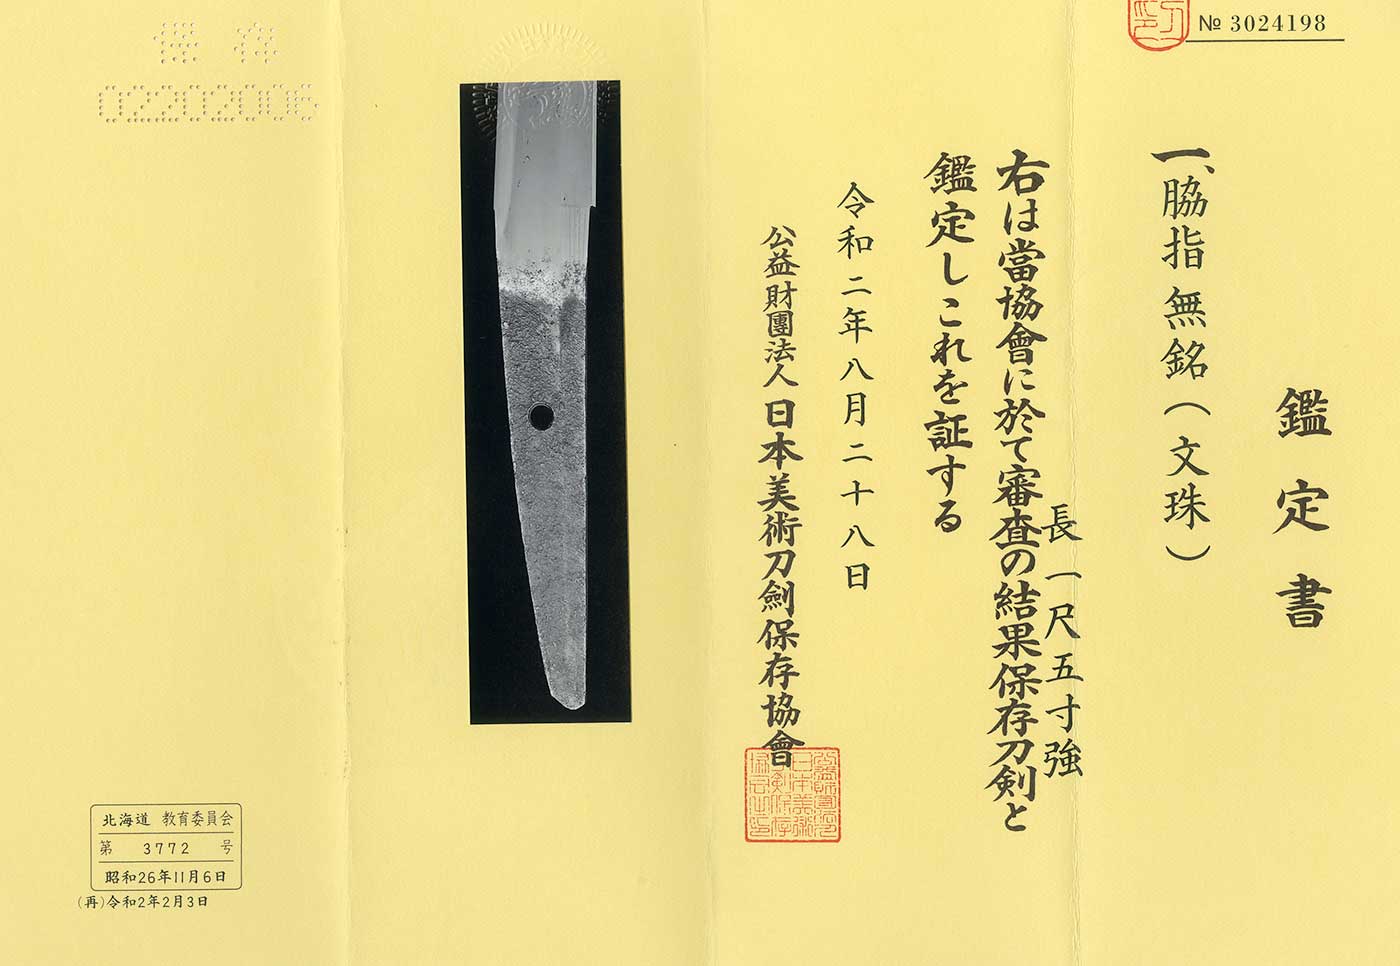 № 3024198
鑑定書
一、脇指 無銘（文珠）
長一尺五寸強
右は當協會に於て審査の結果保存刀剣と
鑑定しこれを証する
令和二年八月二十八日
公益財團法人日本美術刀劍保存協會
保存
0220206
北海道 教育委員会
第 3772 号
昭和26年11月6日
(再)令和2年2月3日